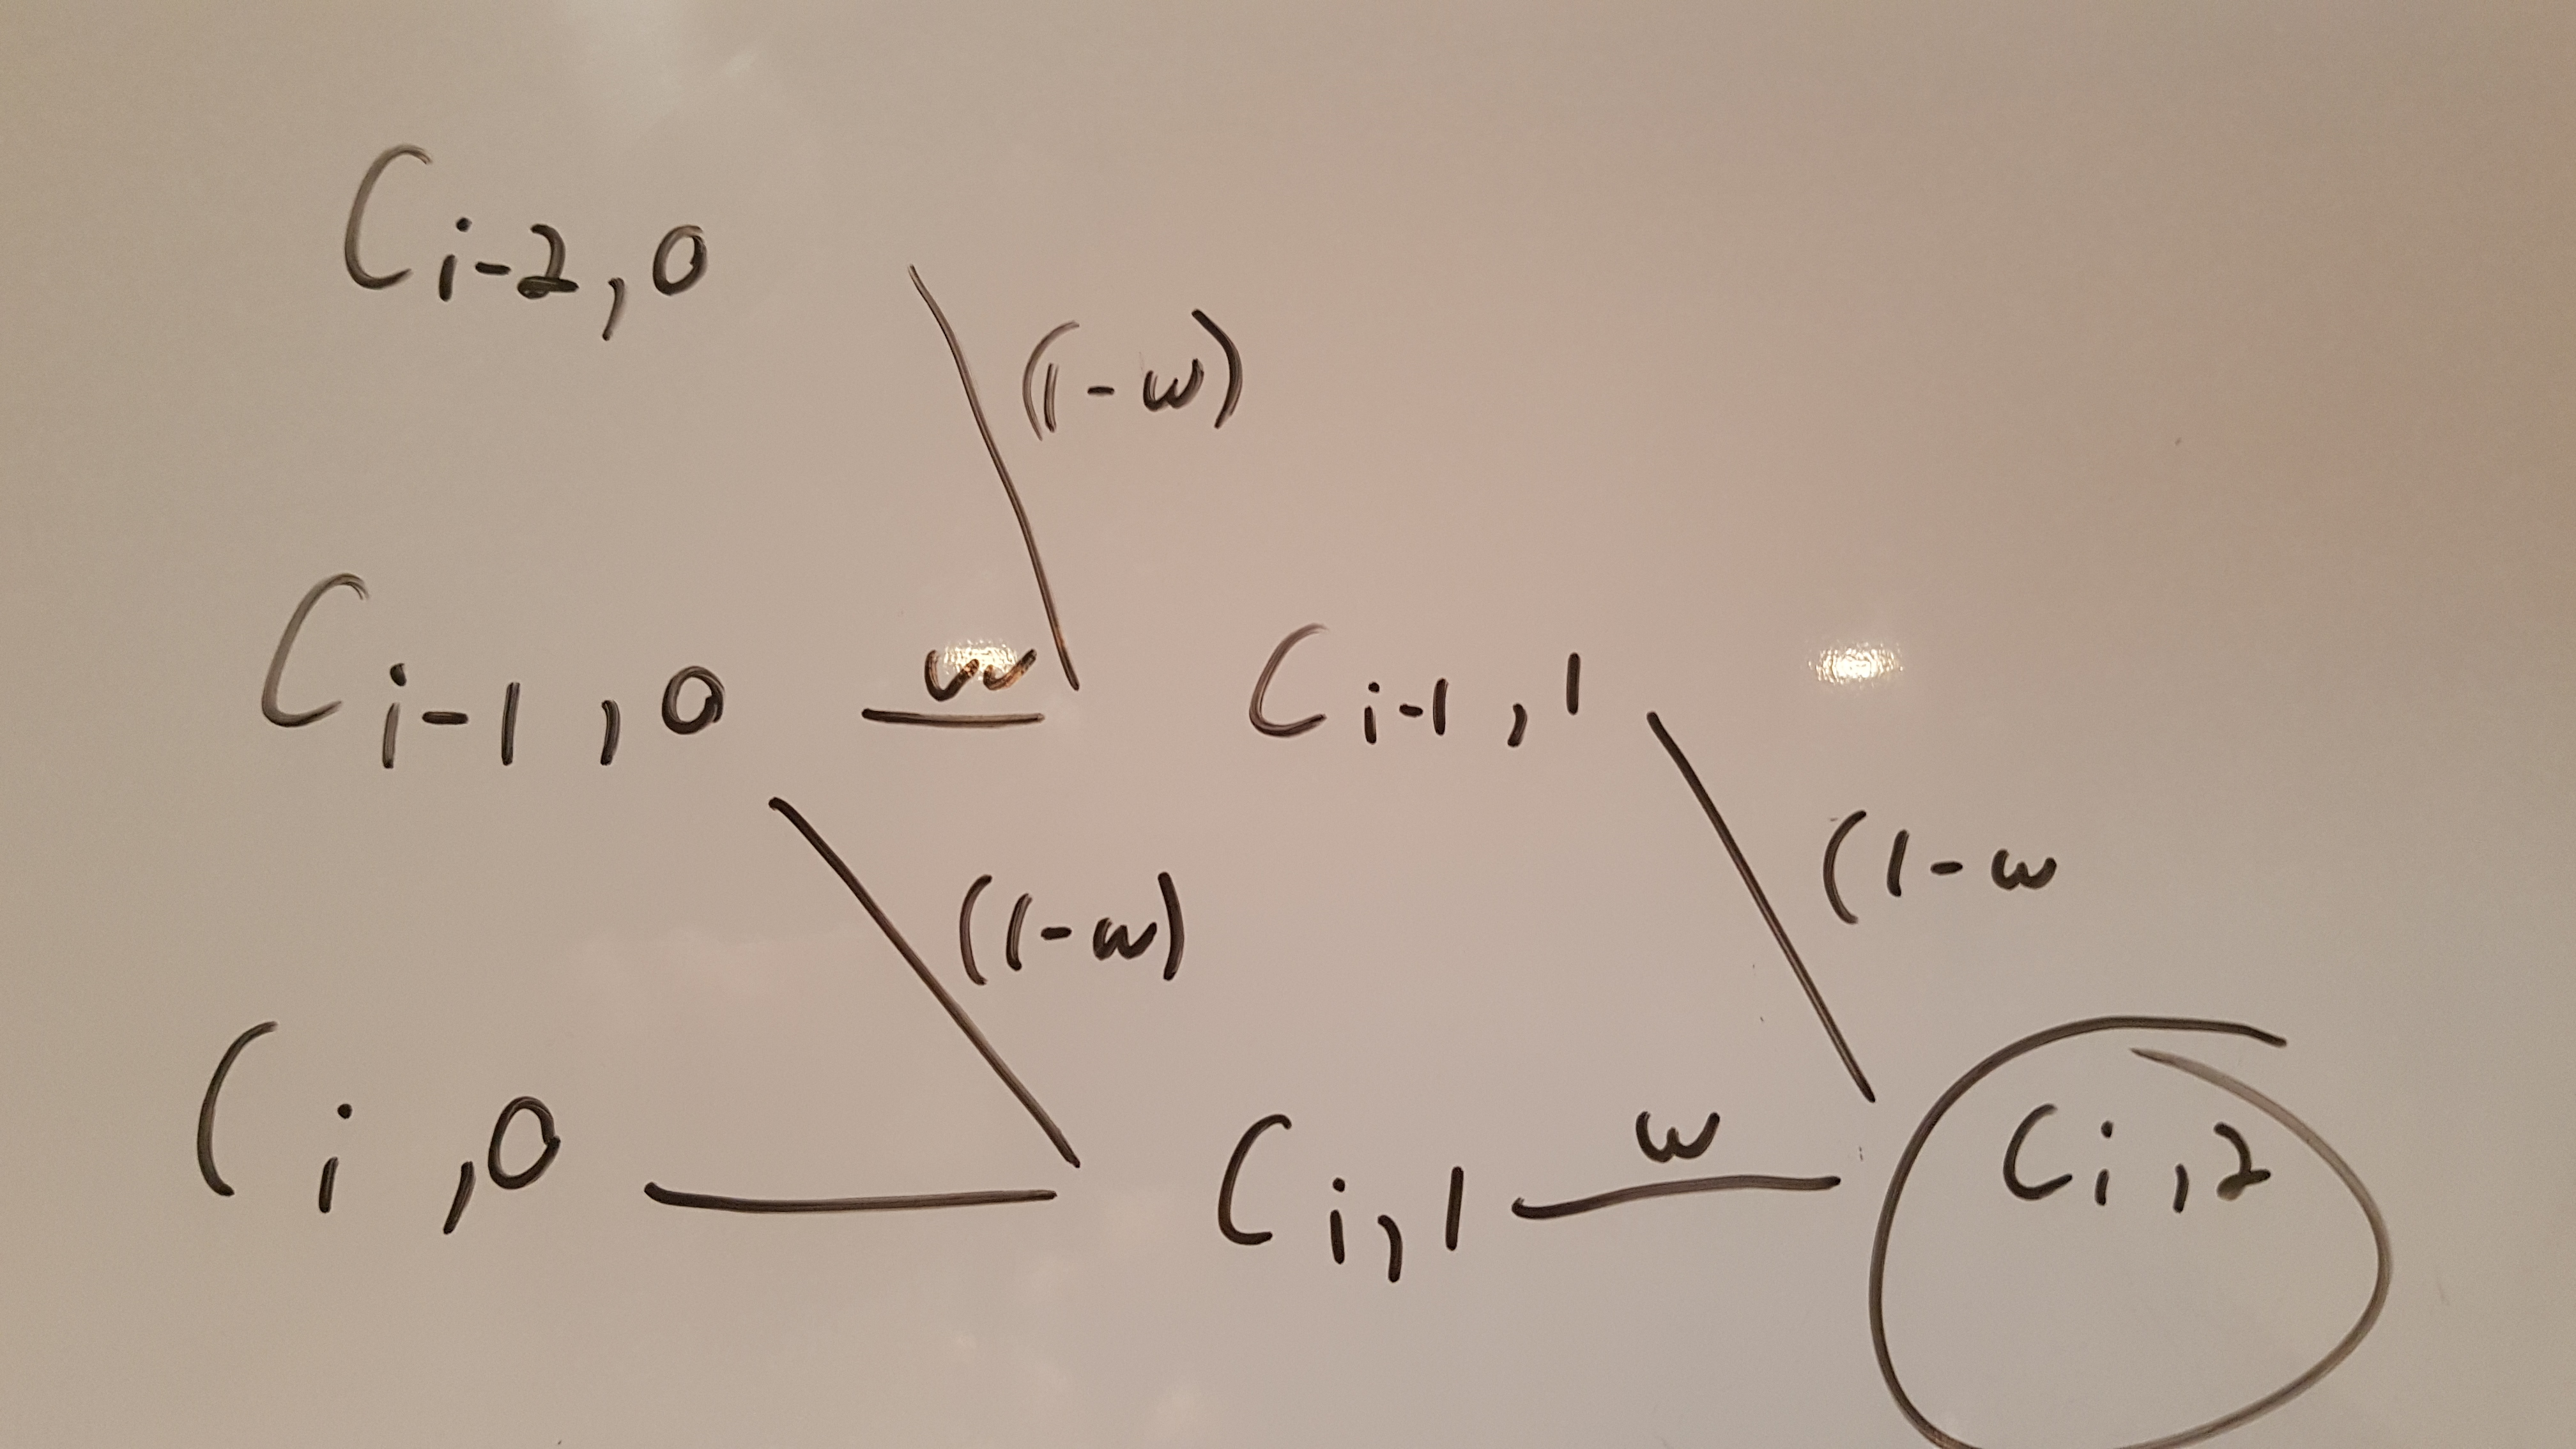 C i-2,0
(1-w)
C i-1,0 w C i-1,1
(1-w) (1-w
C i,0 C i,1 w C i,2